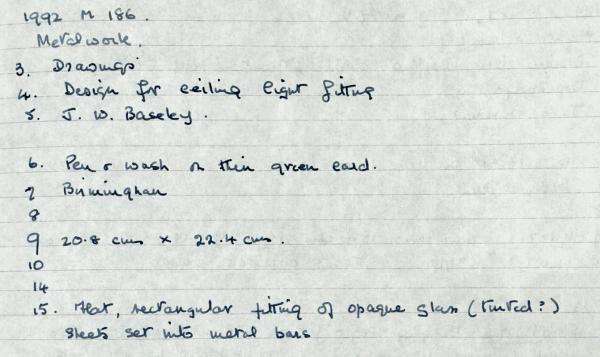 1992 M 186.
Metalwork.
3. Drawings
4. Design for ceiling light fitting
5. J. W. Baseley.
6. Pen & wash on thin green card.
7 Birmingham
8
9 20.8 cms x 22.4 cms.
10
14
15. Flat, rectangular fitting of opaque glass (tinted?)
sheets set into metal bars